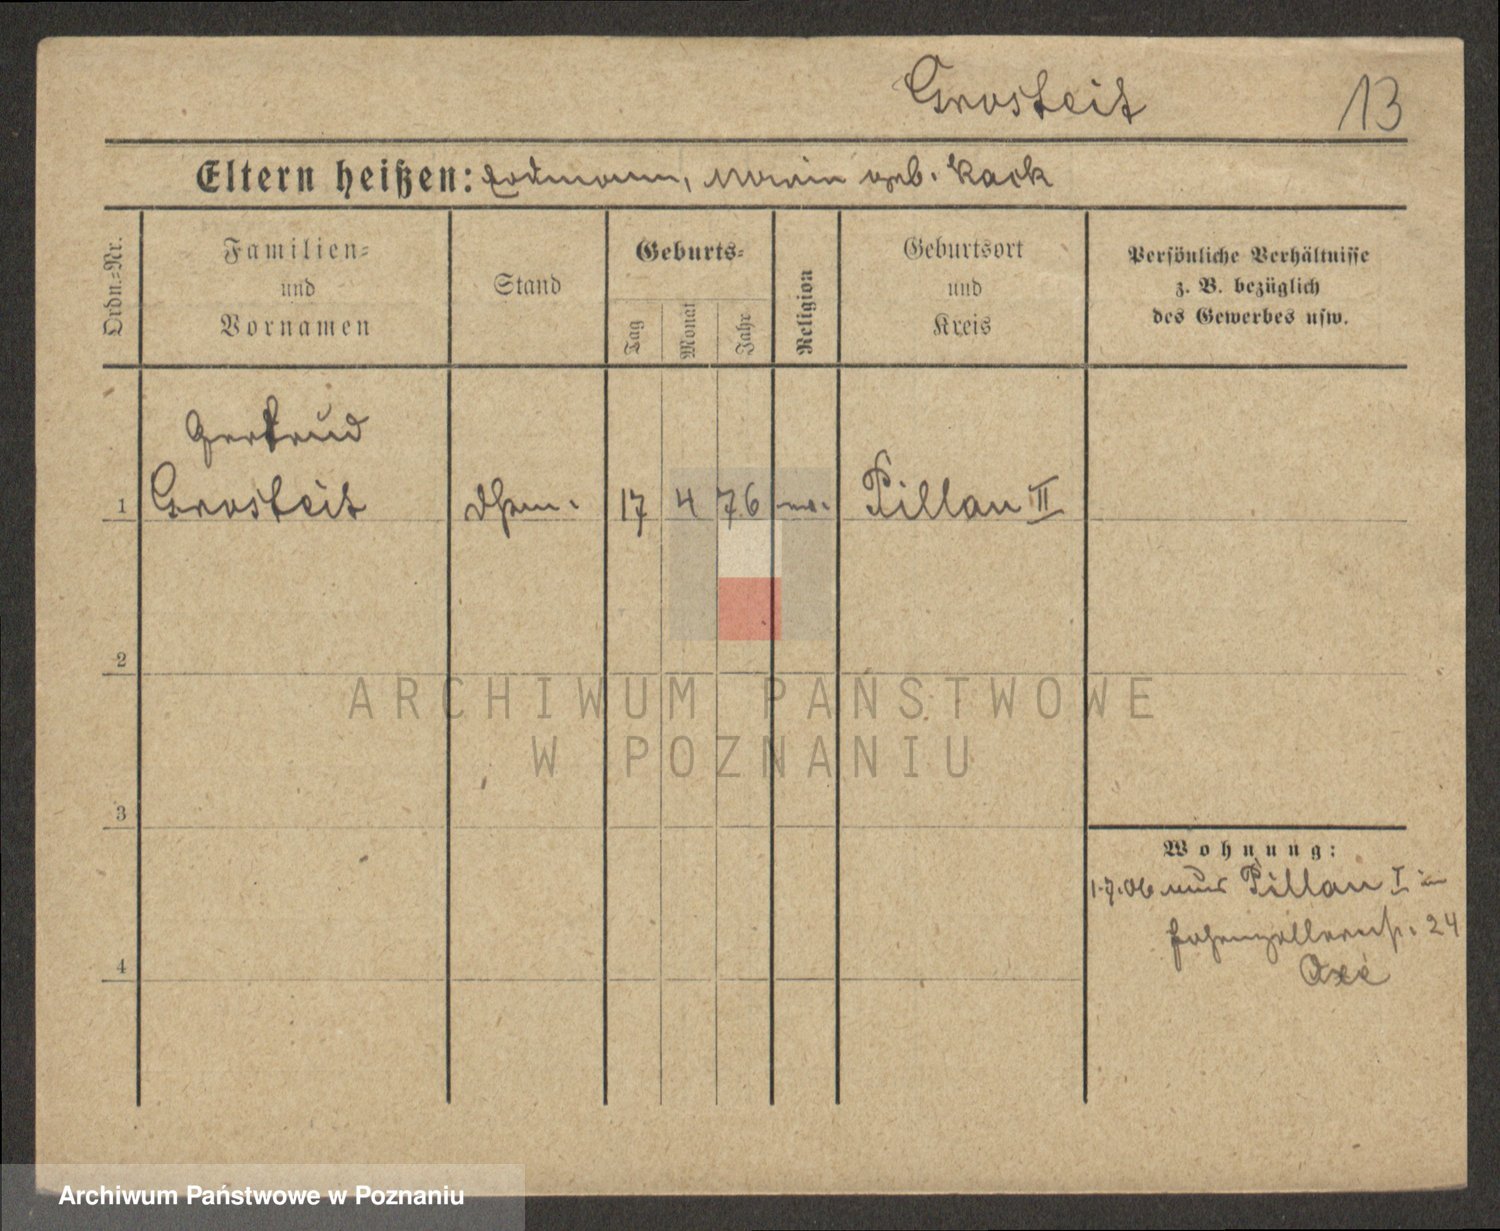 Grosteit
13
Eltern heißen: Erdmann, Maria geb. Kack
Ordn.=Nr.
Familien=
und
Vornamen
Stand
Geburts=
Tag
Monat
Jahr
Religion
Geburtsort
und
Kreis
Persönliche Verhältnisse
z. B. bezüglich
des Gewerbes usw.
Gertrud
1 Grosteit 17 4 76 ev. Pillau II
2
ARCHIWUM PAŃSTWOWE
W POZNANIU
3
Wohnung:
1.7.06 Pillau I
Hohenzollernstr. 24
4
Archiwum Państwowe w Poznaniu